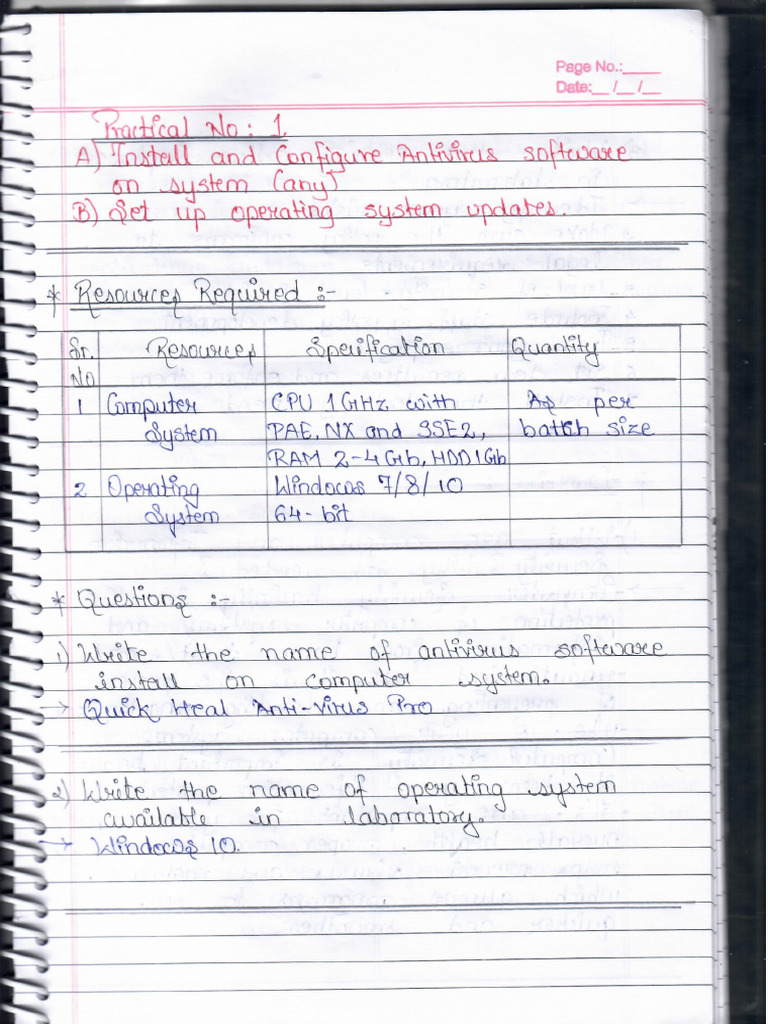 Page No.:____
Date:__/__/__
Practical No: 1
A) Install and Configure Antivirus software
on system (any)
B) Set up operating system updates.
* Resources Required :-
Sr. No | Resources | Specification | Quantity
1 | Computer System | CPU 1GHz with PAE, NX and SSE2, RAM 2-4Gb, HDD1Gb | As per batch size
2 | Operating System | Windows 7/8/10 64-bit
* Questions :-
1) Write the name of antivirus software
install on computer system.
→ Quick Heal Anti-virus Pro
2) Write the name of operating system
available in laboratory.
→ Windows 10.